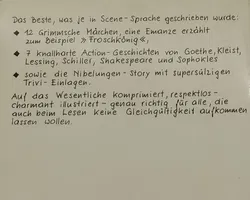 Das Beste, was je in Scene-Sprache geschrieben wurde:
◆ 12 Grimmsche Märchen, eine Emanze erzählt
zum Beispiel »Froschkönig«,
◆ 7 knallharte Action-Geschichten von Goethe, Kleist,
Lessing, Schiller, Shakespeare und Sophokles
◆ sowie die Nibelungen-Story mit supersülzigen
Trivi-Einlagen.
Auf das Wesentliche komprimiert, respektlos-
charmant illustriert – genau richtig für alle, die
auch beim Lesen keine Gleichgültigkeit aufkommen
lassen wollen.